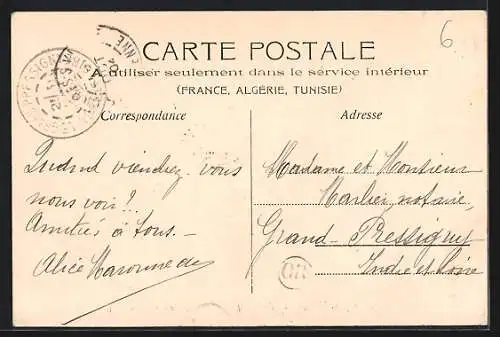 6
CARTE POSTALE
A utiliser seulement dans le service intérieur
(FRANCE, ALGÉRIE, TUNISIE)
Correspondance
Adresse
Quand viendrez vous
nous voir?..
Amitiés à tous. —
Alice
Madame et Monsieur
Marlier, notaire,
Grand-Pressigny
Indre et Loire
OR